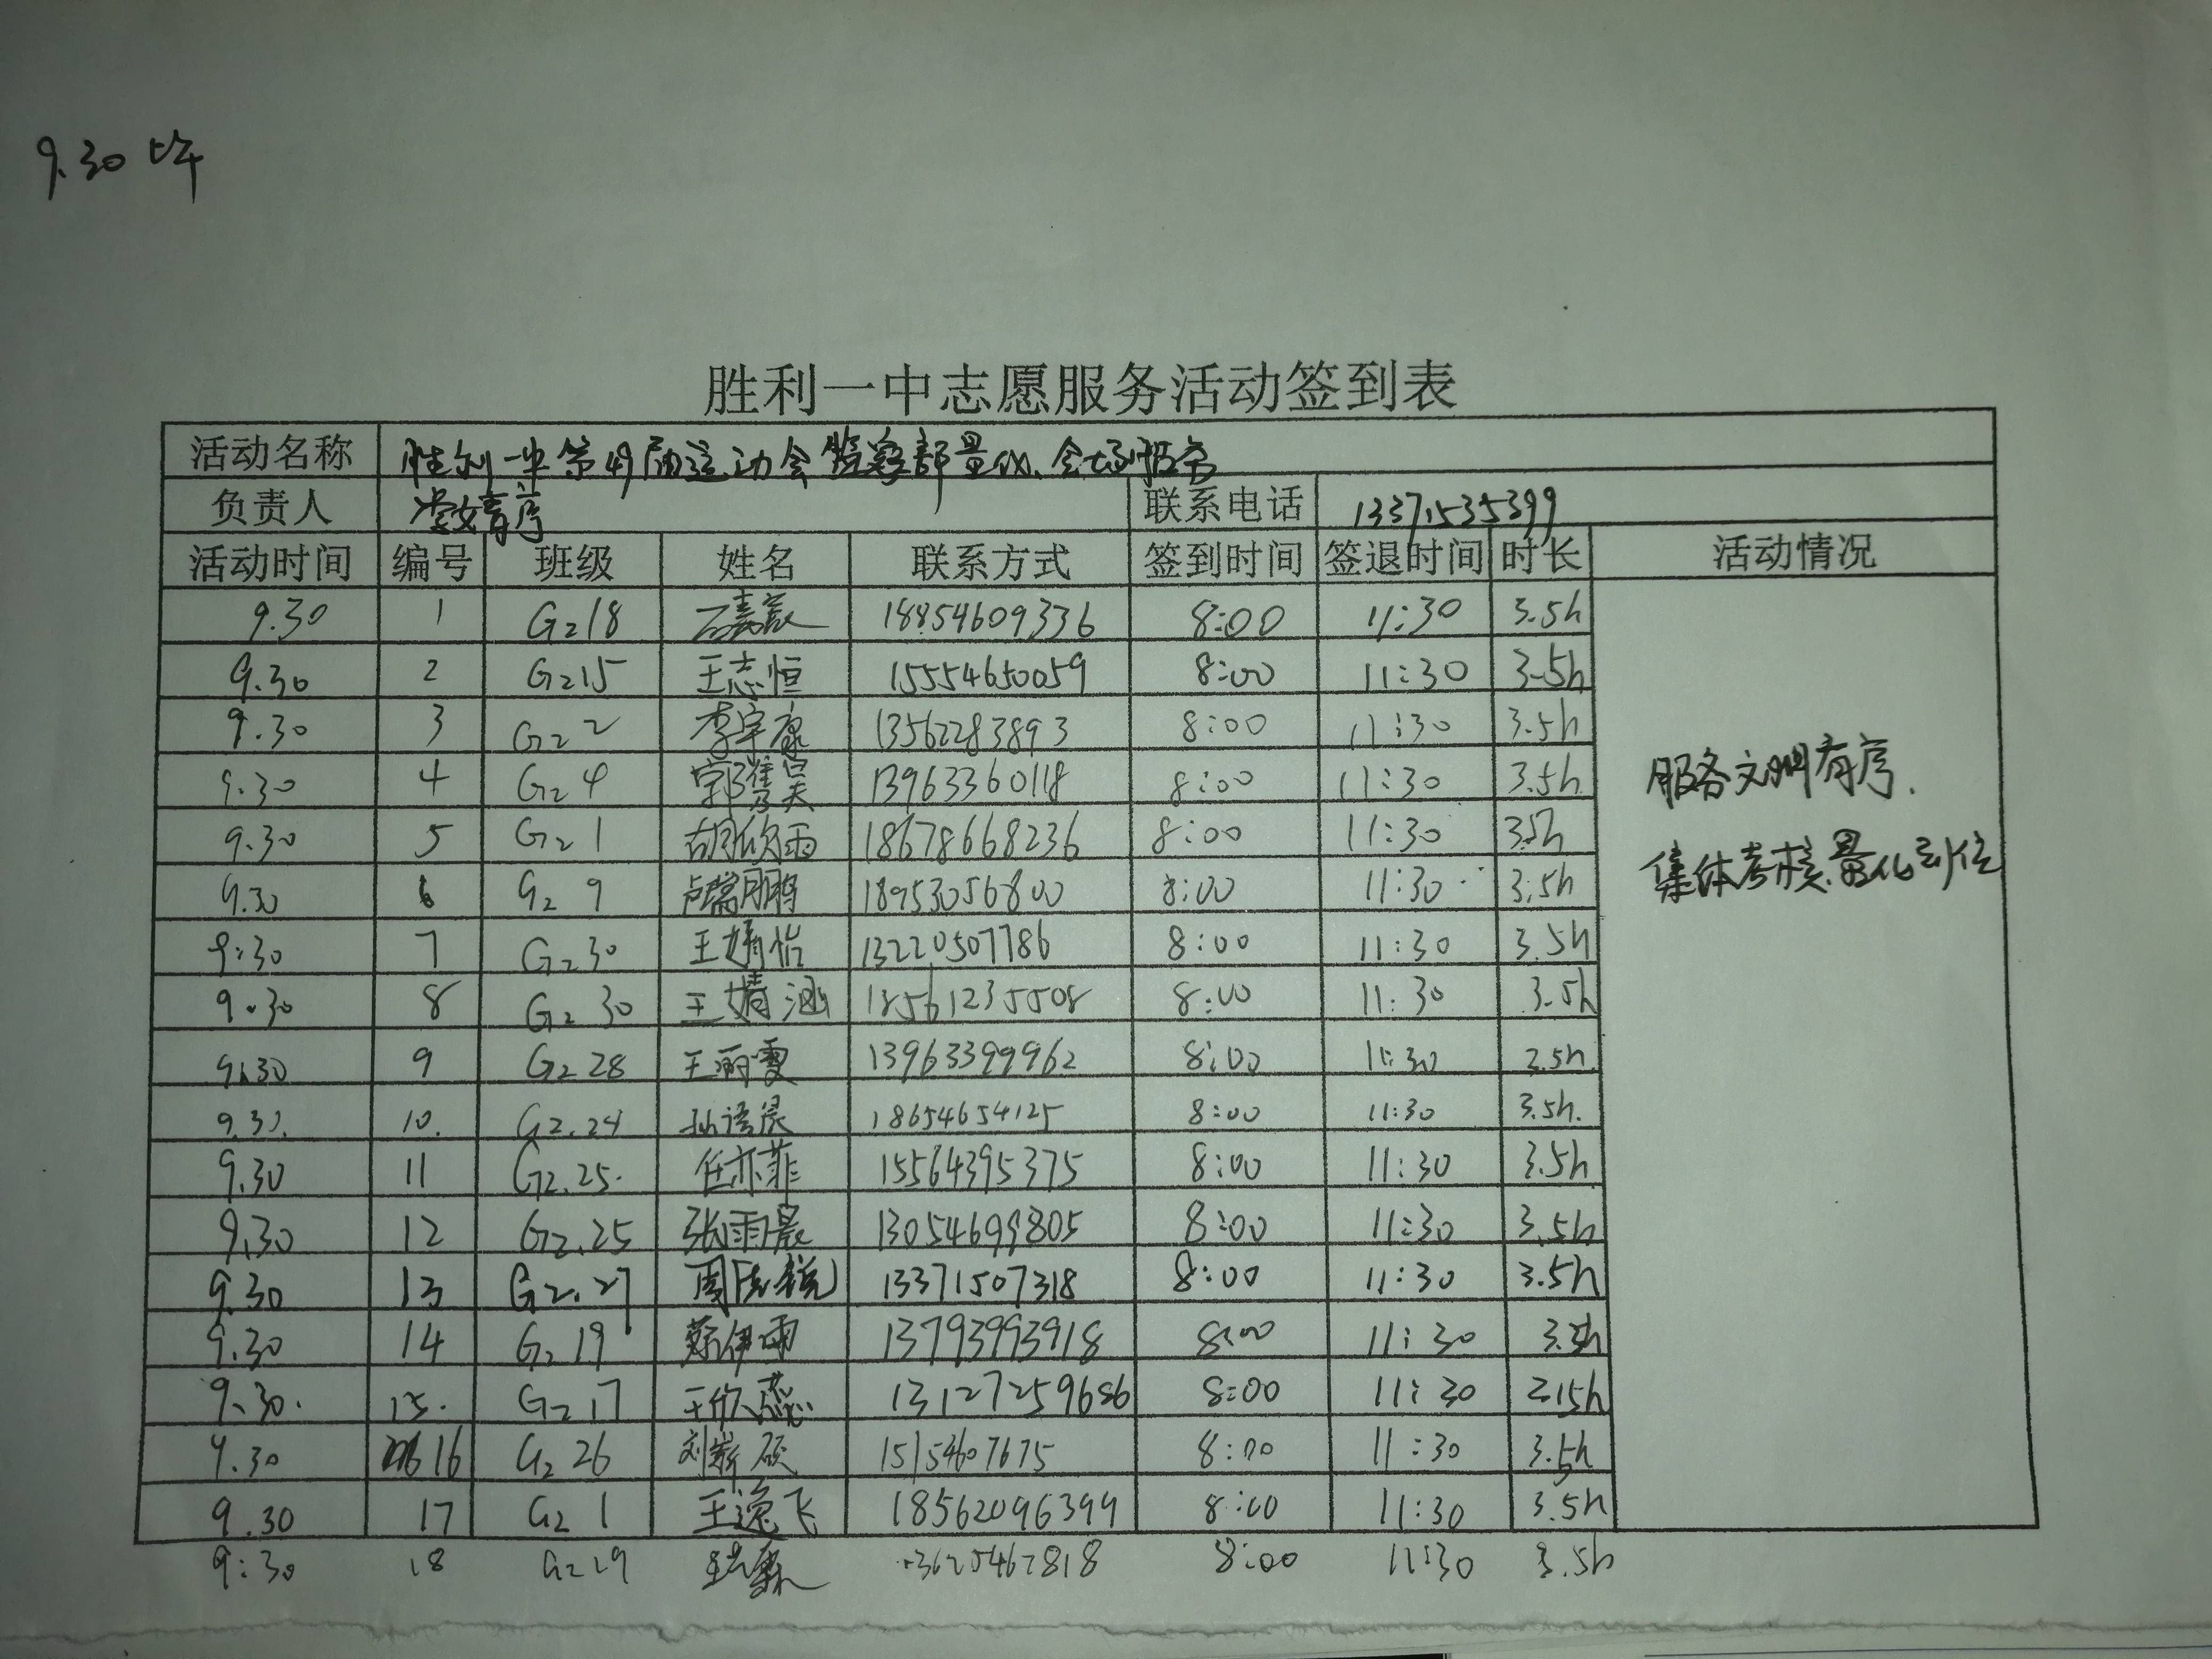 9.30 上午
胜利一中志愿服务活动签到表
活动名称 胜利一中第49届运动会监察部量化、会场服务
负责人 联系电话 13371535399
活动时间 编号 班级 姓名 联系方式 签到时间 签退时间 时长 活动情况
9.30 1 G218 18854609336 8:00 11:30 3.5h
9.30 2 G215 王志恒 15554650059 8:00 11:30 3.5h
9.30 3 G22 李宇康 13562283893 8:00 11:30 3.5h
9.30 4 G24 13963360118 8:00 11:30 3.5h
9.30 5 G21 胡欣雨 18678668236 8:00 11:30 3.5h
9.30 6 G29 卢瑞鹏 18953056800 8:00 11:30 3.5h
9:30 7 G230 王婧怡 13220507786 8:00 11:30 3.5h
9.30 8 G230 王婧涵 18561235508 8:00 11:30 3.5h
9.30 9 G228 王丽雯 13963399962 8:00 11:30 3.5h
9.30. 10. G2.24 孙语晨 18654654125 8:00 11:30 3.5h.
9.30 11 G2.25. 任亦菲 15564395375 8:00 11:30 3.5h
9.30 12 G2.25 张雨晨 13054699805 8:00 11:30 3.5h
9.30 13 G2.27 13371507318 8:00 11:30 3.5h
9.30 14 G219 苏伊雨 13793993918 8:00 11:30 3.5h
9.30. 15. G217 王欣蕊 13127259686 8:00 11:30 3.5h
9.30 16 G226 15154607675 8:00 11:30 3.5h
9.30 17 G21 王逸飞 18562096399 8:00 11:30 3.5h
9:30 18 G229 13625467818 8:00 11:30 3.5h
服务文明有序.
集体考核.量化到位